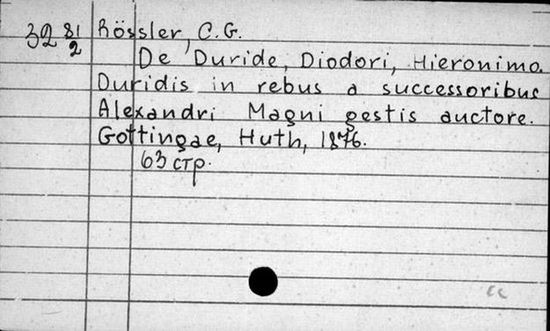 32 81/2 Rössler, C.G.
De Duride, Diodori, Hieronimo.
Duridis in rebus a successoribus
Alexandri Magni gestis auctore.
Gottingae, Huth, 1876.
63 стр.